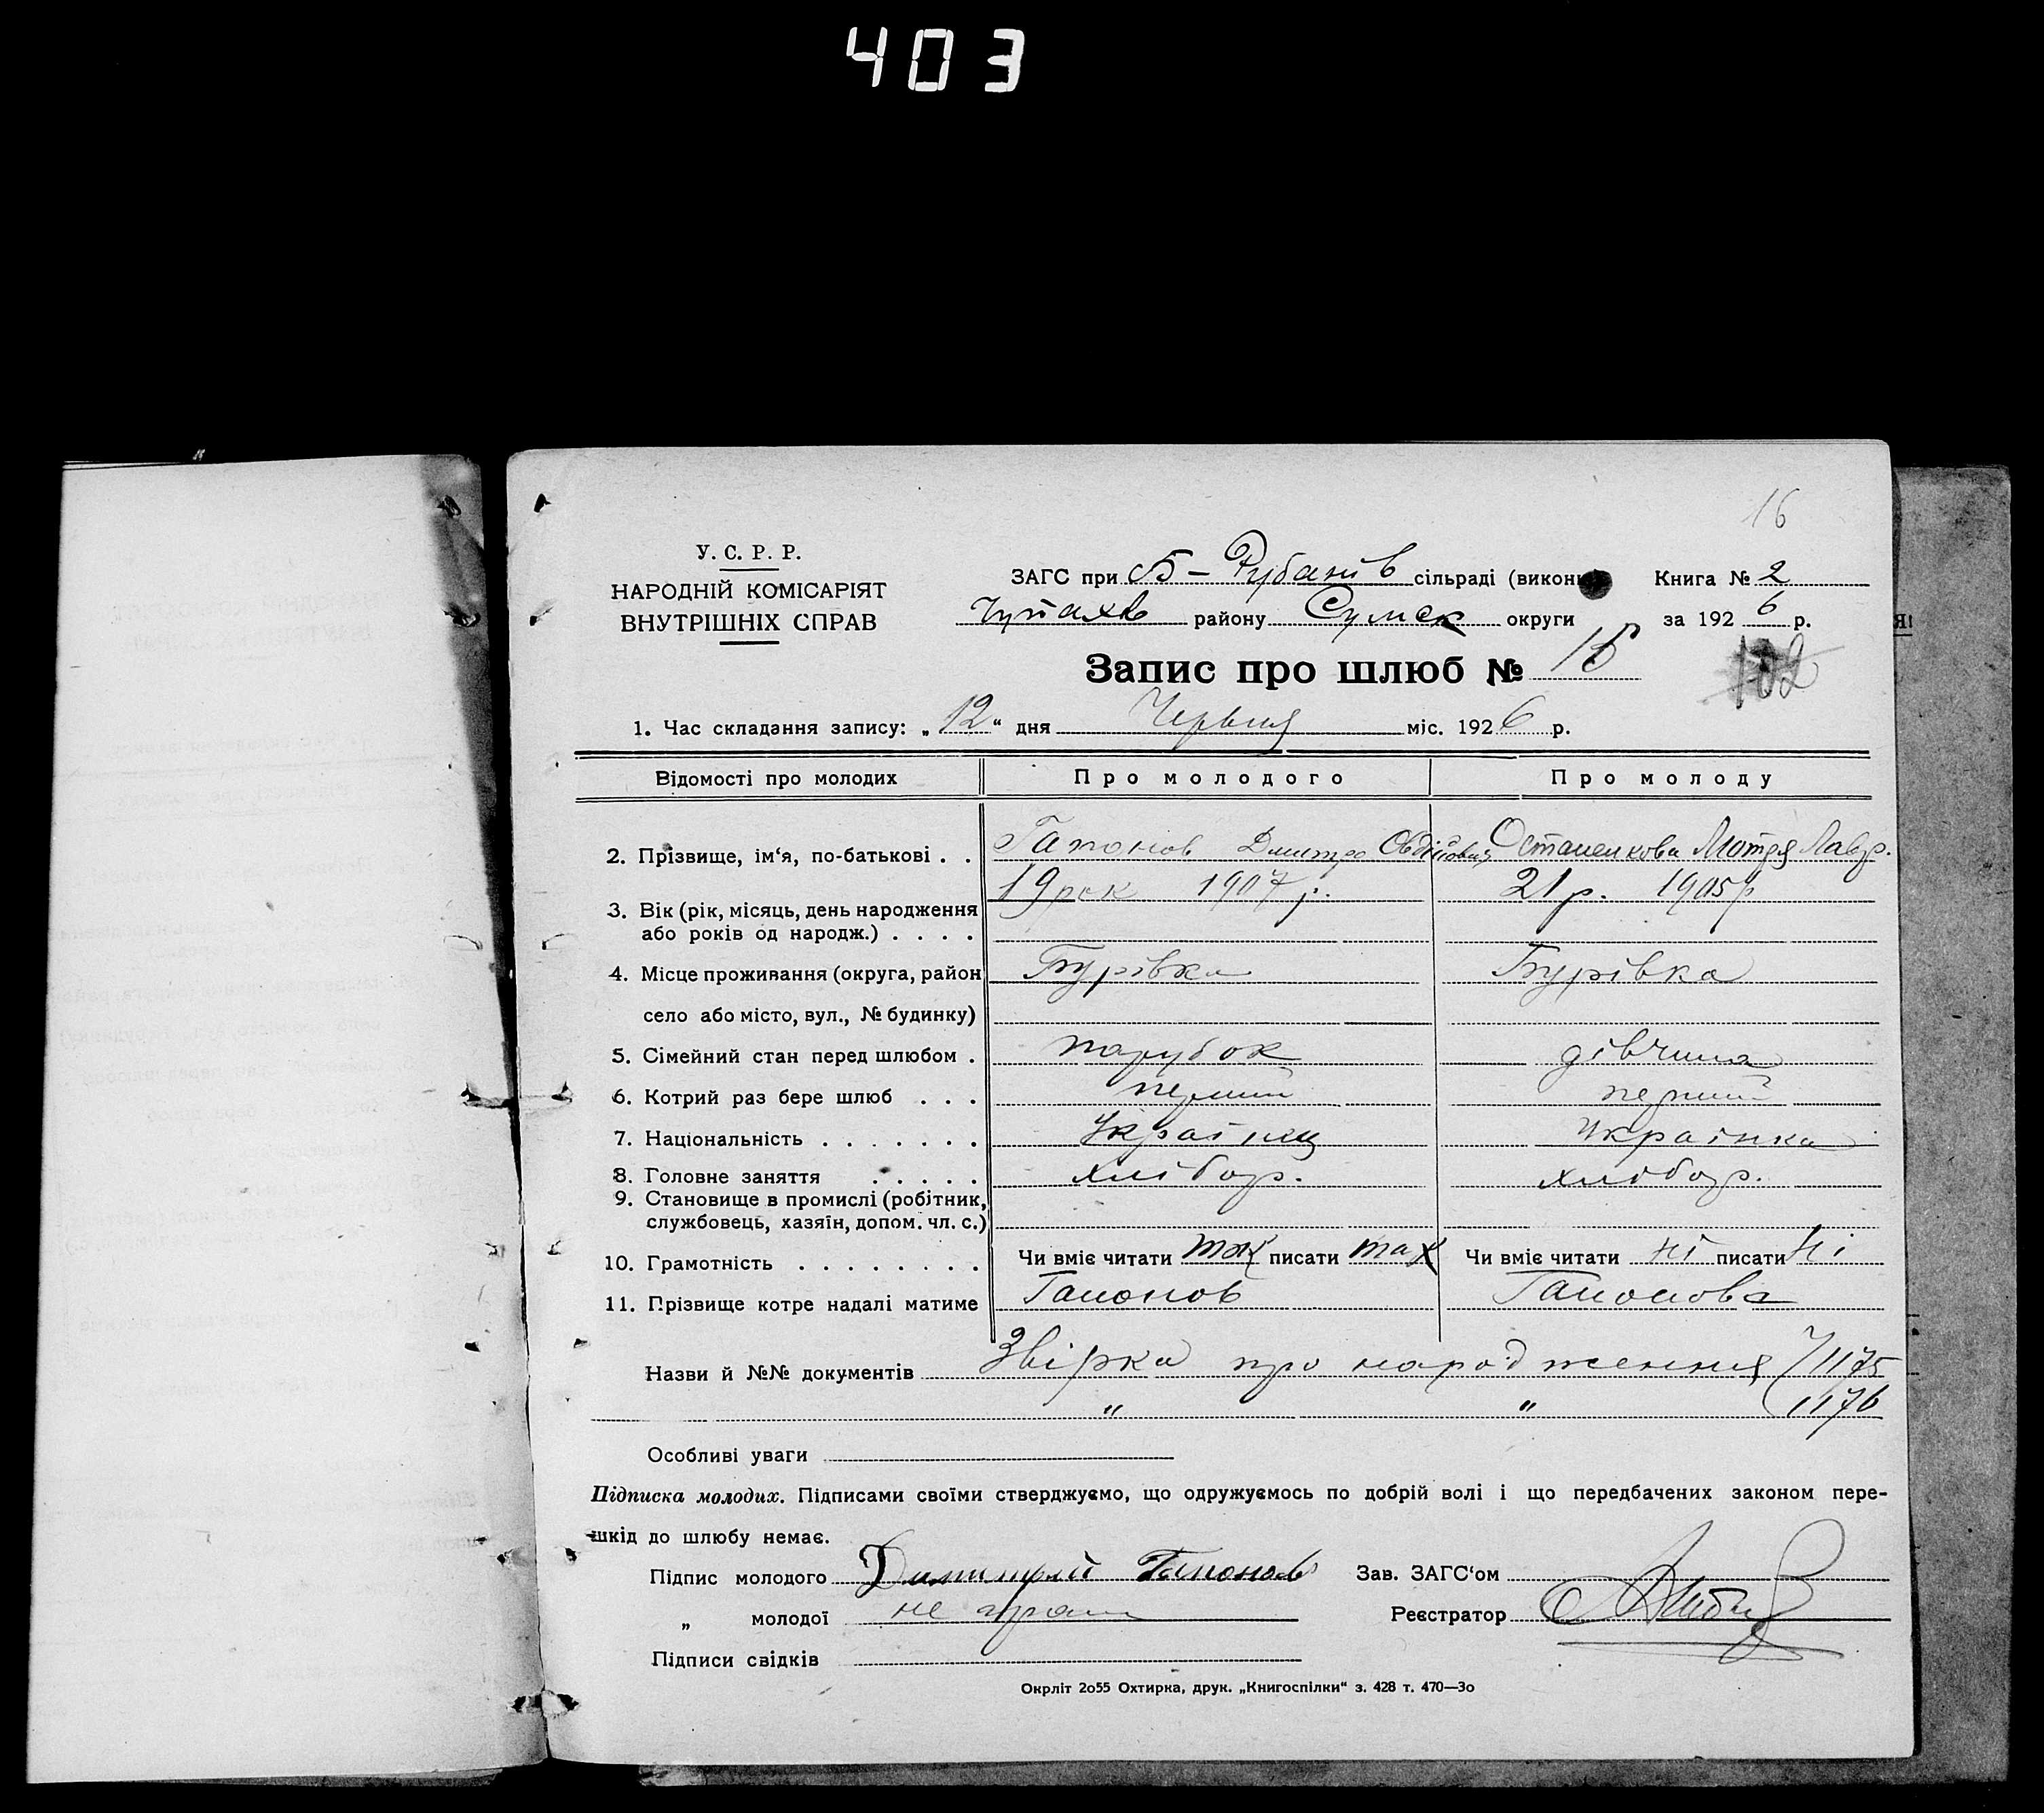 403
16
У. С. Р. Р.
НАРОДНІЙ КОМІСАРІЯТ
ВНУТРІШНІХ СПРАВ
ЗАГС при Б-Рубанів сільраді (викон Книга № 2
Чупахів району Сумск округи за 1926 р.
Запис про шлюб № 15 102
1. Час складання запису: „12" дня Червня міс. 1926 р.
Відомості про молодих Про молодого Про молоду
2. Прізвище, ім'я, по-батькові . . Гапонов Дмитро Овдійович Остапенкова Мотря Лавр.
19 рок 1907 р. 21 р. 1905 р
3. Вік (рік, місяць, день народження
або років од народж.) . . . .
4. Місце проживання (округа, район Бурівка Бурівка
село або місто, вул., № будинку)
5. Сімейний стан перед шлюбом . парубок дівчина
6. Котрий раз бере шлюб . . . перший перший
7. Національність . . . . . . . Українец Українка
8. Головне заняття . . . . . хлібор. хлібор.
9. Становище в промислі (робітник,
службовець, хазяїн, допом. чл. с.)
10. Грамотність . . . . . . . . Чи вміє читати так писати так Чи вміє читати ні писати ні
11. Прізвище котре надалі матиме Гапонов Гапонова
Назви й №№ документів Звірка про народження 1175
" " 1176
Особливі уваги
Підписка молодих. Підписами своїми стверджуємо, що одружуємось по добрій волі і що передбачених законом пере-
шкід до шлюбу немає.
Підпис молодого Димитрий Гапонов Зав. ЗАГС'ом
„ молодої не грам Реєстратор
Підписи свідків
Окрліт 2о55 Охтирка, друк. „Книгоспілки" з. 428 т. 470—3о